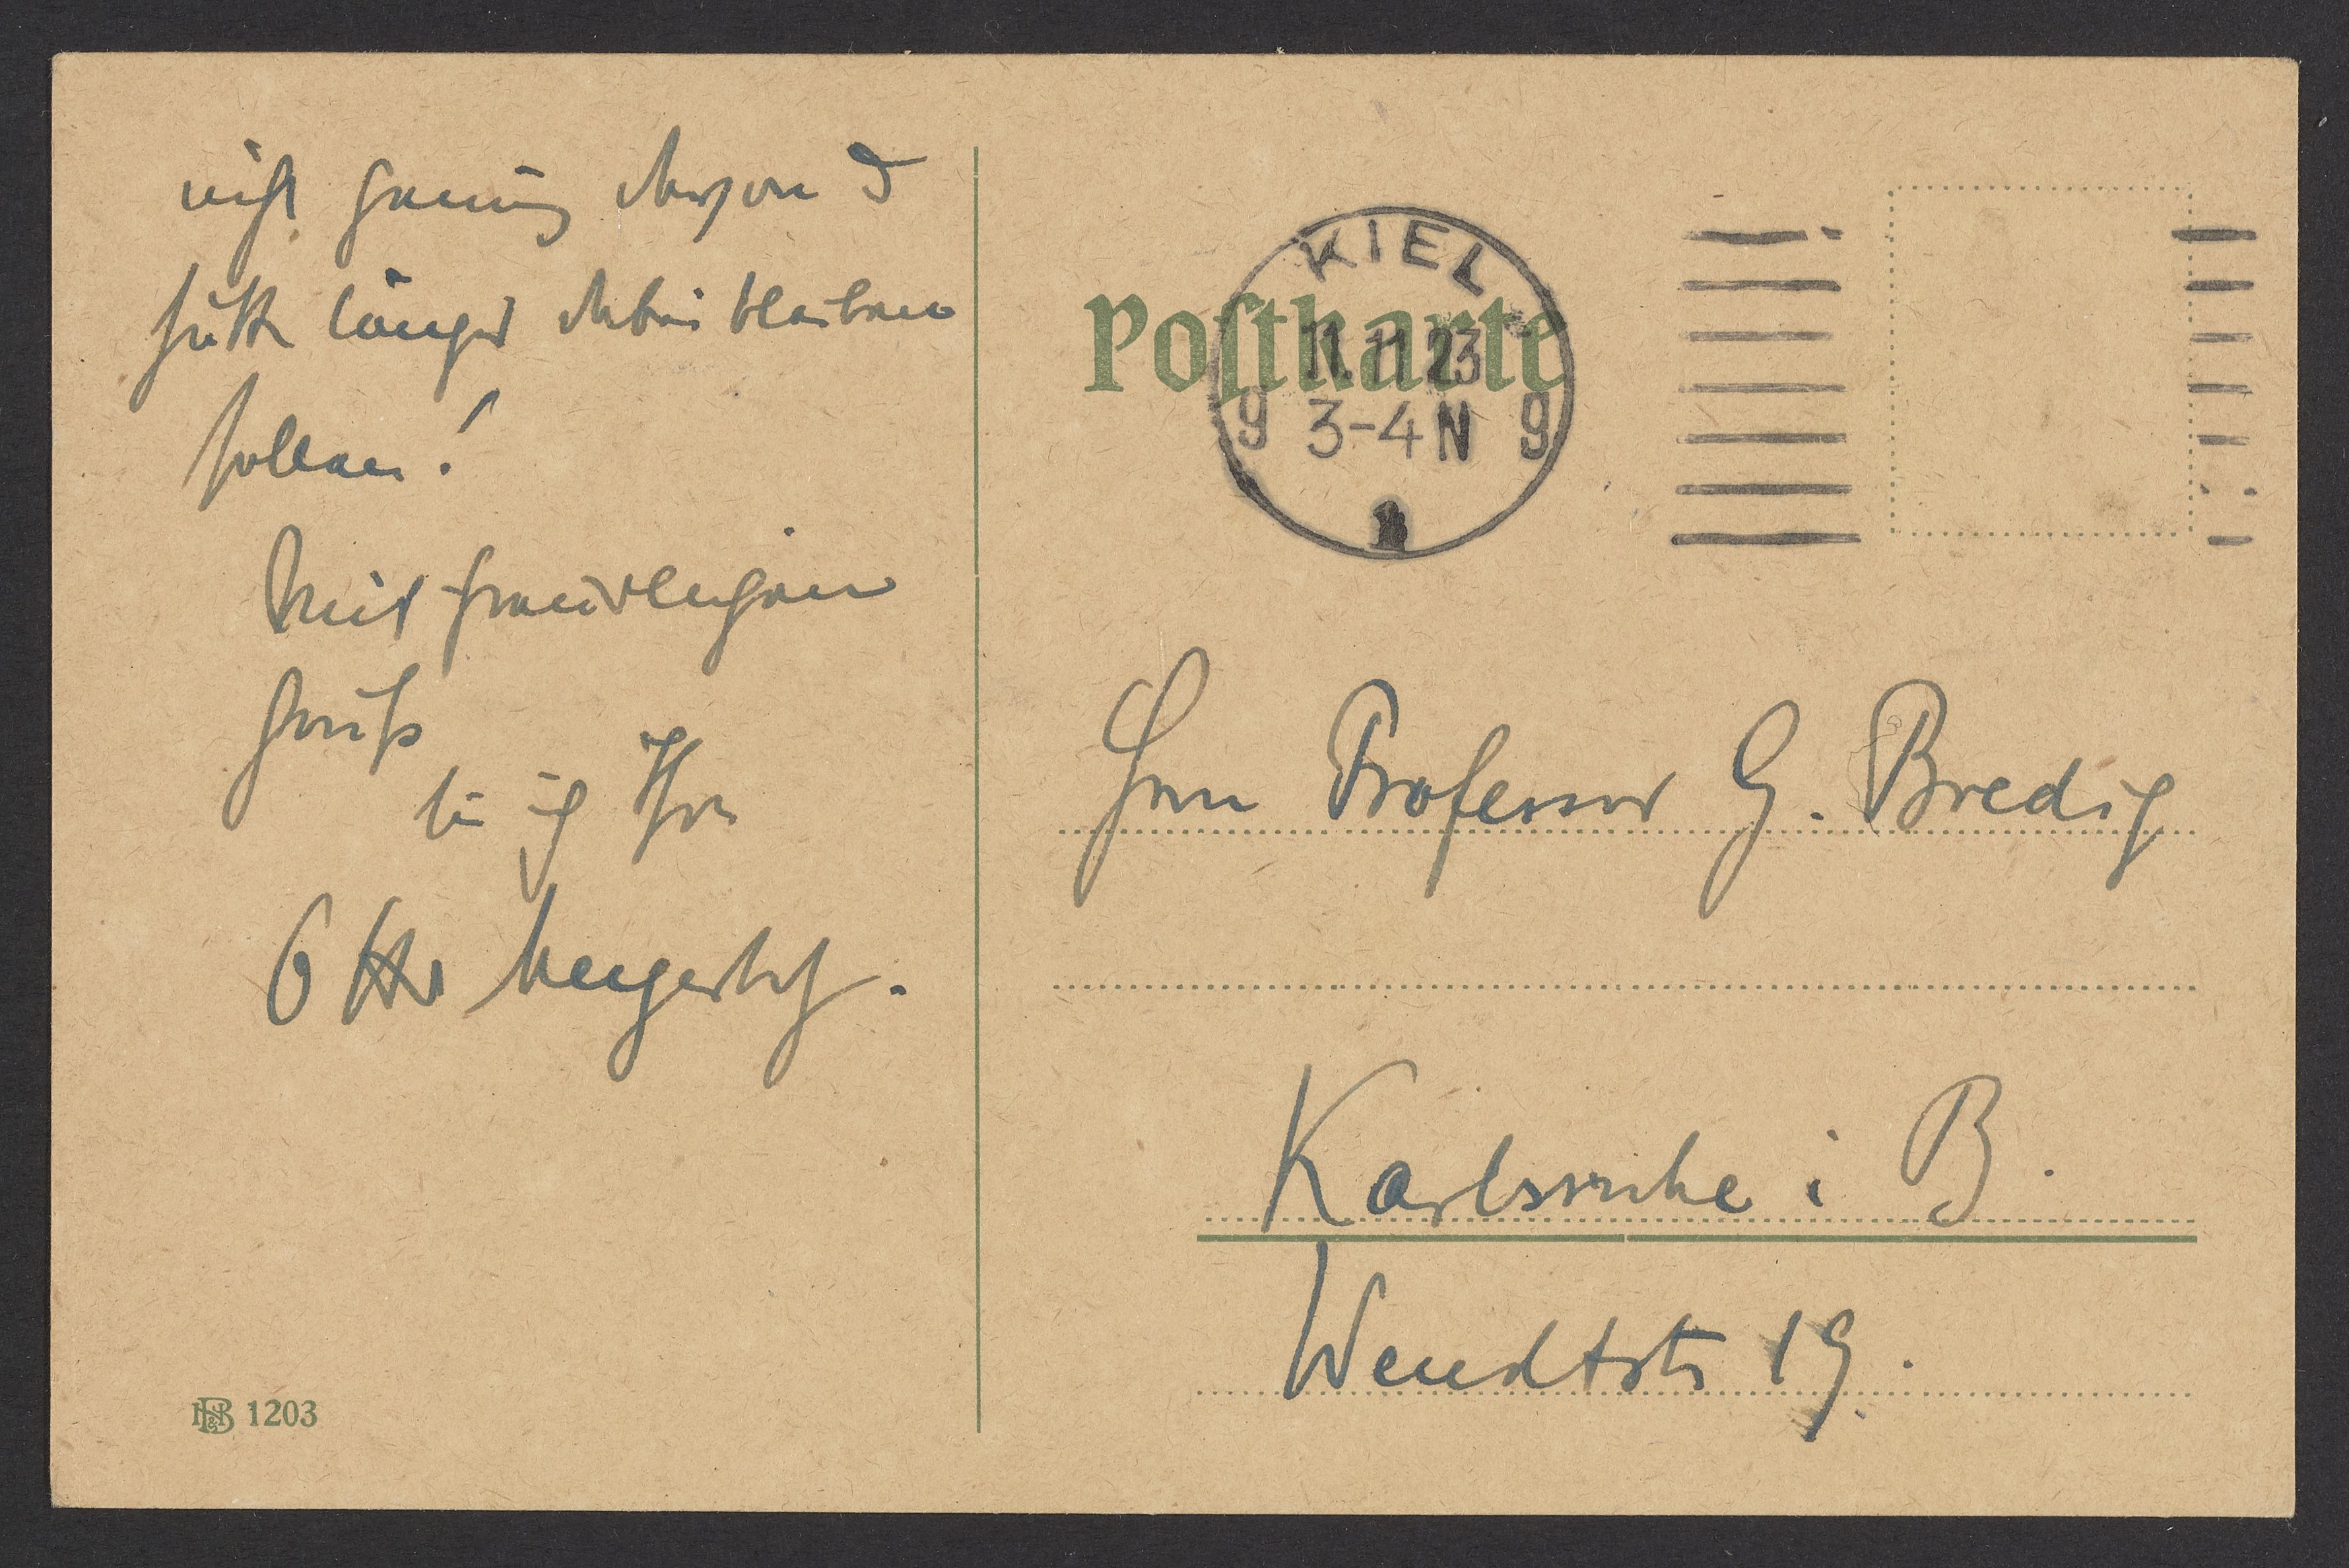 nicht genug davon &
hätte länger dabei bleiben
sollen!
Mit freundlichem
Gruß
bin ich Ihr
Otto Meyerhof.
Postkarte
KIEL
11.11.23
9 3-4 N 9
Herrn Professor G. Bredig
Karlsruhe i B.
Wendtstr 19.
HB 1203